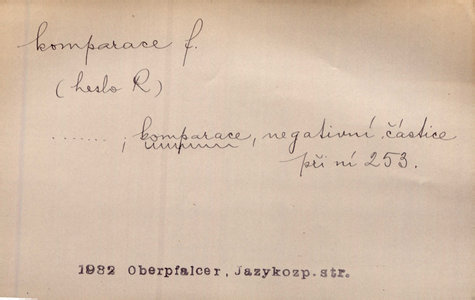 komparace f.
(heslo R)
......., komparace, negativní částice
při ní 253.
1932 Oberpfalcer, Jazykozp. str.